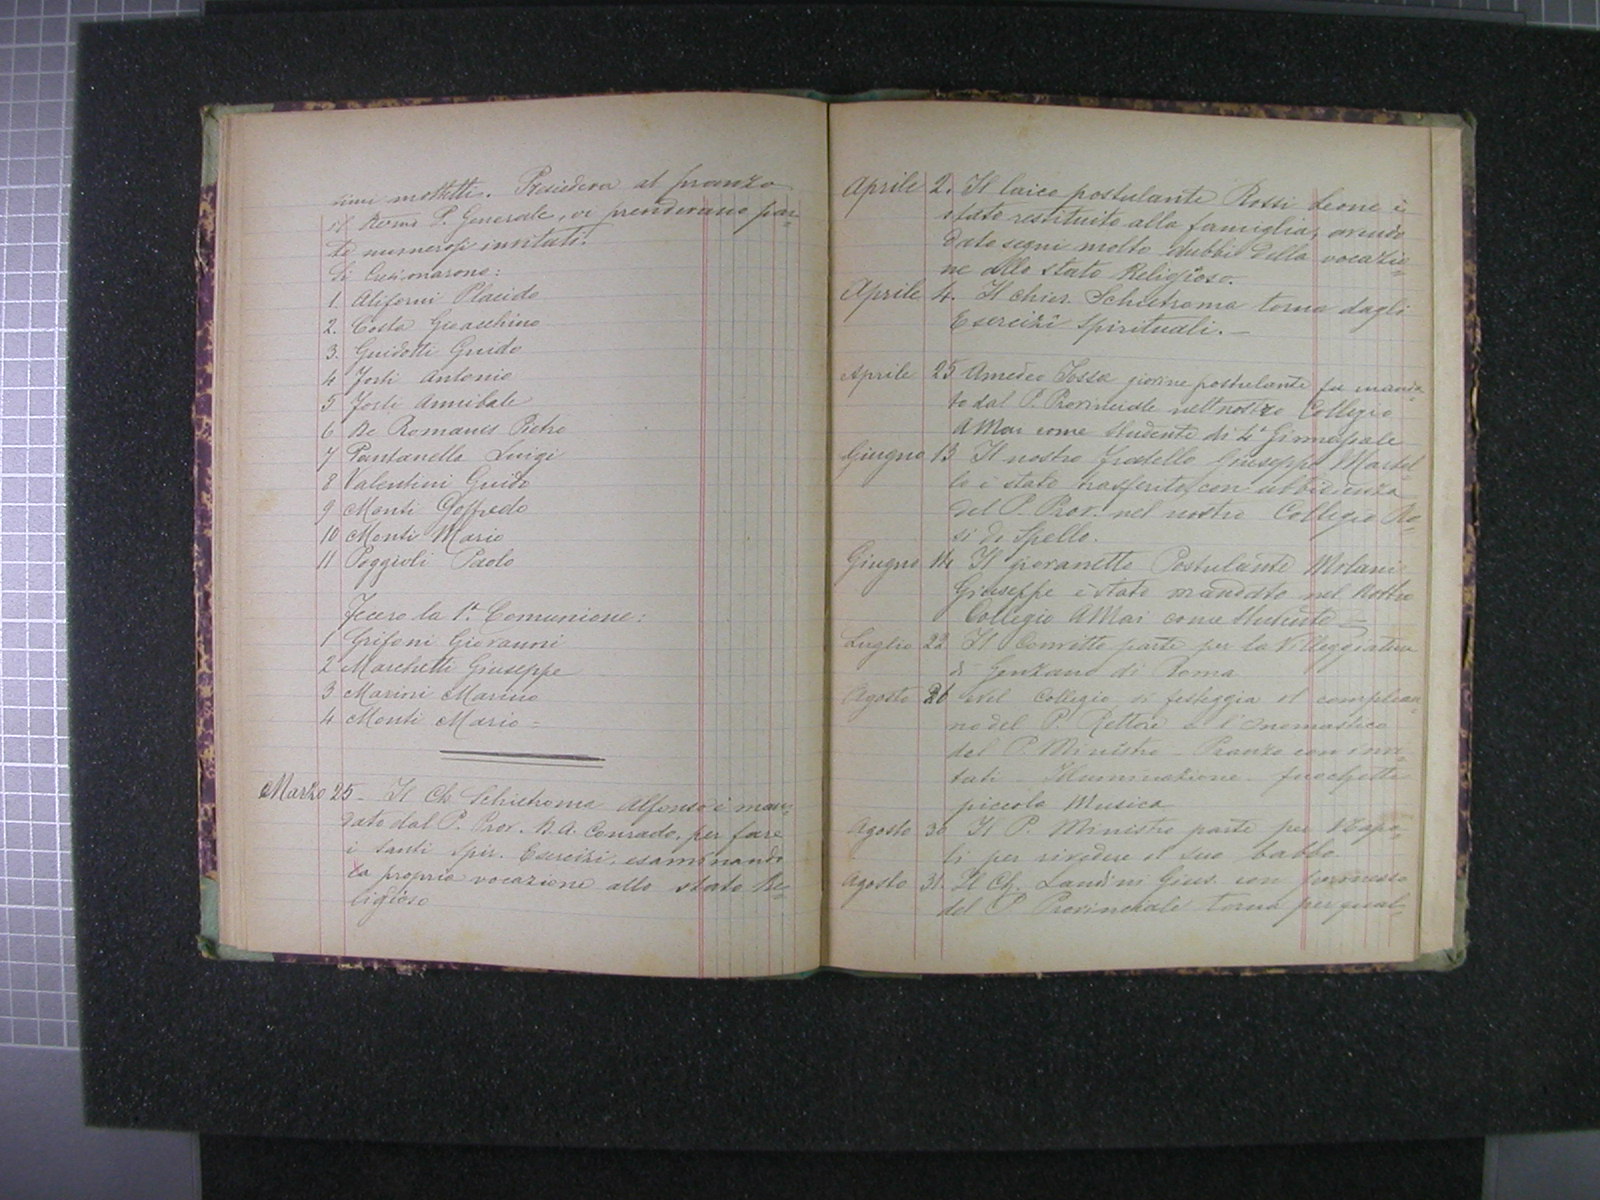 simi mottetti. Presiedeva al pranzo
il Revmo P. Generale, vi prenderano par-
te numerosi invitati.
Si Cresimarono:
1. Aliforni Placido
2. Costa Gioacchino
3. Guidotti Guido
4 Forti Antonio
5 Forti Annibale
6 De Romanis Pietro
7 Pantanella Luigi
8 Valentini Guido
9 Monti Goffredo
10 Monti Mario
11 Poggioli Paolo
Fecero la 1ª Comunione:
1 Grifoni Giovanni
2 Marchetti Giuseppe
3 Marini Marino
4 Monti Mario =
Marzo 25 - Il Ch. Schietroma Alfonso è man-
dato dal P. Prov. B. A. Conrado, per fare
i santi Spir. Esercizi, esaminando
la propria vocazione allo stato Re-
ligioso
Aprile 2. Il laico postulante Rossi Leone è
stato restituito alla famiglia, avendo
dato segni molto dubbi della vocazio-
ne allo stato Religioso.
Aprile 4. Il chier. Schietroma torna dagli
Esercizi Spirituali. -
Aprile 25 Amedeo Fossa giovine postulante fu manda-
to dal P. Provinciale nell nostro Collegio
A Mai come studente di 4ª Ginnasiale
Giugno 13 Il nostro fratello Giuseppe Martel-
lo è stato trasferito con ubbidienza
del P. Prov. nel nostro Collegio Ro-
si di Spello.
Giugno 14 Il giovanetto Postulante Milani
Giuseppe è stato mandato nel Nostro
Collegio A Mai come Studente =
Luglio 22 Il Convitto parte per la Villeggiatura
di Genzano di Roma
Agosto 26 Nel Collegio si festeggia il complean-
no del P. Rettore e l'Onomastico
del P. Ministro - Pranzo con invi-
tati - Illuminazione - fuochetti
piccola Musica
Agosto 30 Il P. Ministro parte per Napo-
li per rivedere il suo babbo
Agosto 31. Il Ch. Landini Gius. con permesso
del P. Provinciale torna per qual-